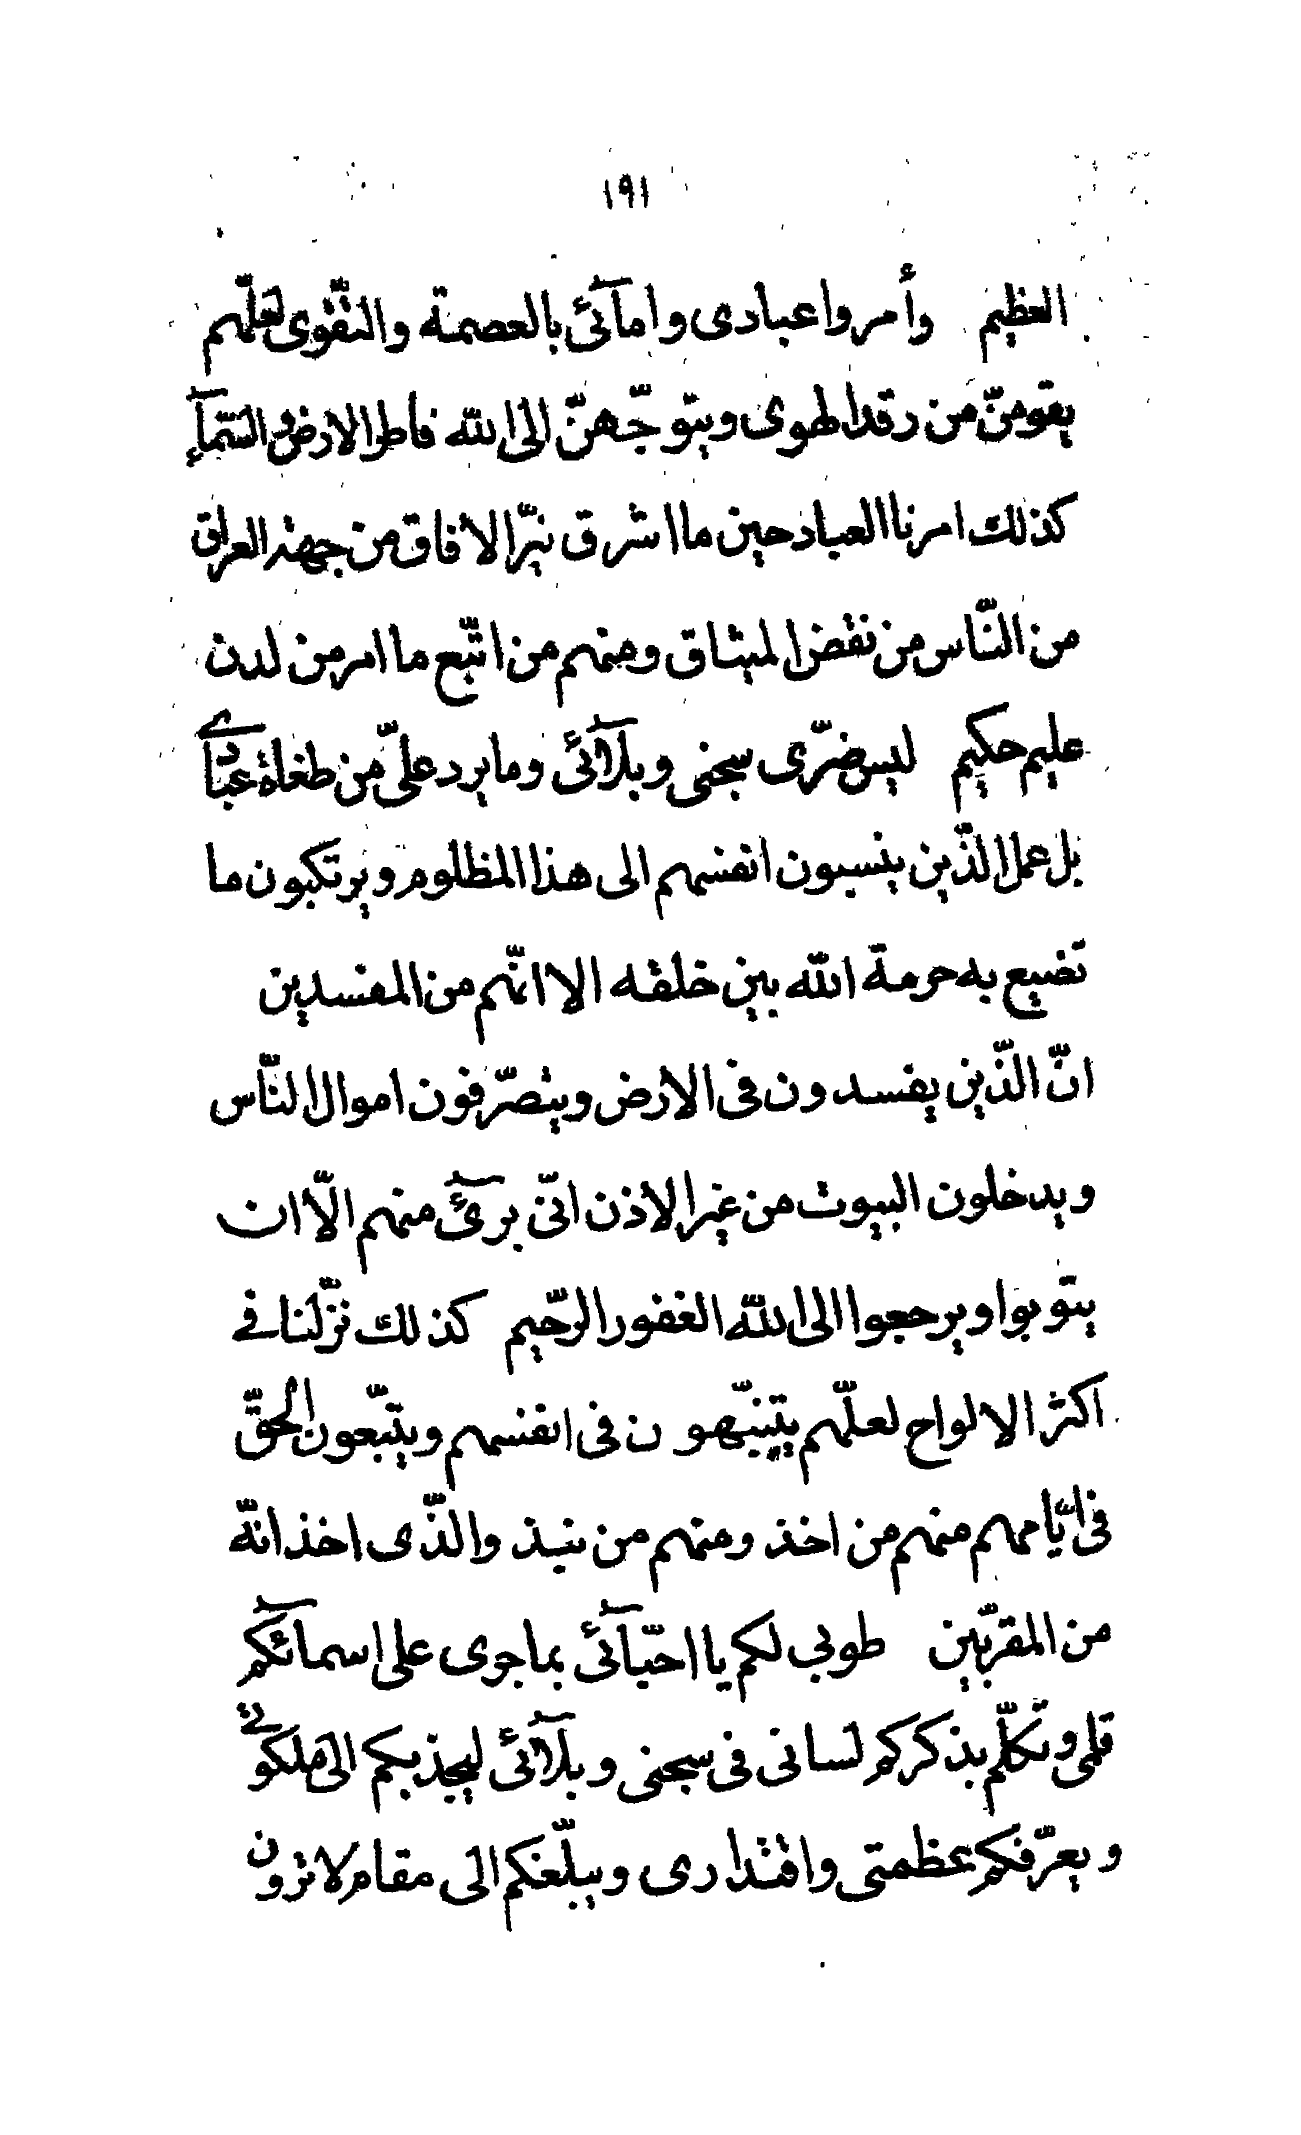 ١٩١
العظيم وأمروا عبادى وامآئى بالعصمة والتّقوى لعلّهم
يقومنّ من رقد الهوى ويتوجّهنّ الى الله فاطر الارض والسّمآء
كذلك امرنا العباد حين ما اشرق نيّر الافاق من جهة العراق
من النّاس من نقض الميثاق ومنهم من اتّبع ما امر من لدن
عليم حكيم ليس ضرّى سجنى وبلآئى وما يرد علىّ من طغاة عبادى
بل عمل الّذين ينسبون انفسهم الى هذا المظلوم ويرتكبون ما
تضيع به حرمة الله بين خلقه الا انّهم من المفسدين
انّ الّذين يفسدون فى الارض ويتصرّفون اموال النّاس
ويدخلون البيوت من غير الاذن انّى برئ منهم الّا ان
يتوبوا ويرجعوا الى الله الغفور الرّحيم كذلك نزّلنا فى
اكثر الالواح لعلّهم يتنبّهون فى انفسهم ويتّبعون الحقّ
فى ايّامهم منهم من اخذ ومنهم من نبذ والّذى اخذ انّه
من المقرّبين طوبى لكم يا احبّآئى بما جرى على اسمآئكم
قلمى وتكلّم بذكركم لسانى فى سجنى وبلآئى ليجذبكم الى ملكوتى
ويعرّفكم عظمتى واقتدارى ويبلّغكم الى مقام لا ترون